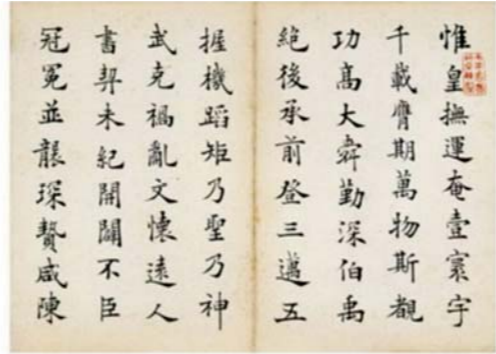 惟皇撫運奄壹寰宇
千載膺期萬物斯覩
功高大舜勤深伯禹
絶後承前登三邁五
握機蹈矩乃聖乃神
武克禍亂文懷遠人
書契未紀開闢不臣
冠冕並襲琛贄咸陳